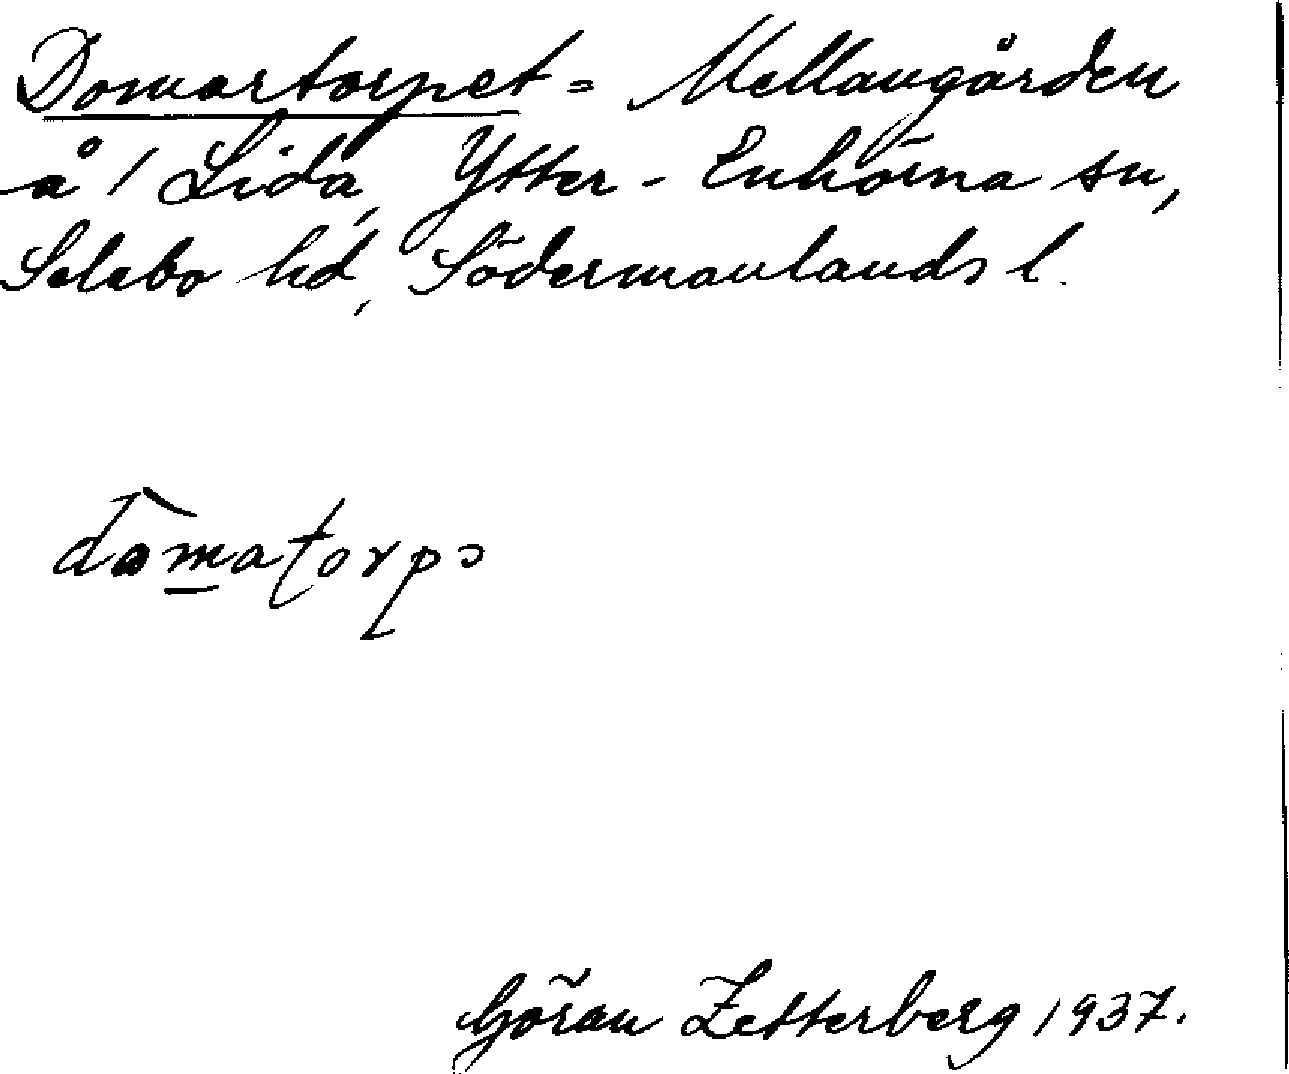 Domartorpet = Mellangården
å 1 Lida, Ytter-Enhörna sn,
Selebo hd, Södermanlands l.
dōmatorpɔ
Göran Zetterberg 1937.